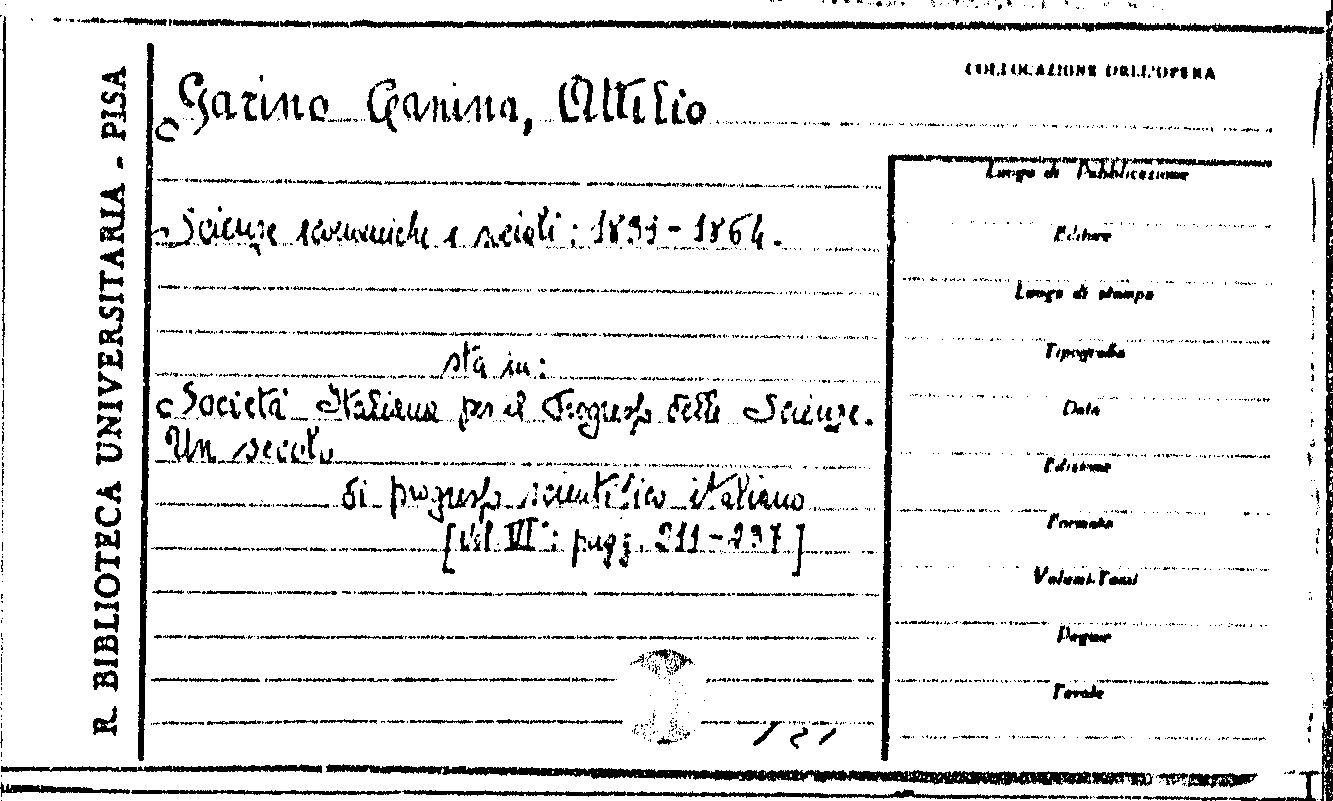 R. BIBLIOTECA UNIVERSITARIA - PISA
COLLOCAZIONE DELL'OPERA
Garino Canina, Attilio
Scienze economiche e sociali: 1831-1864.
sta in:
Società Italiana per il Progresso delle Scienze.
Un secolo
di progresso scientifico italiano
[Vol. VI°: pagg. 211-237]
121
Luogo di Pubblicazione
Editore
Luogo di stampa
Tipografia
Data
Edizione
Formato
Volumi-Tomi
Pagine
Tavole